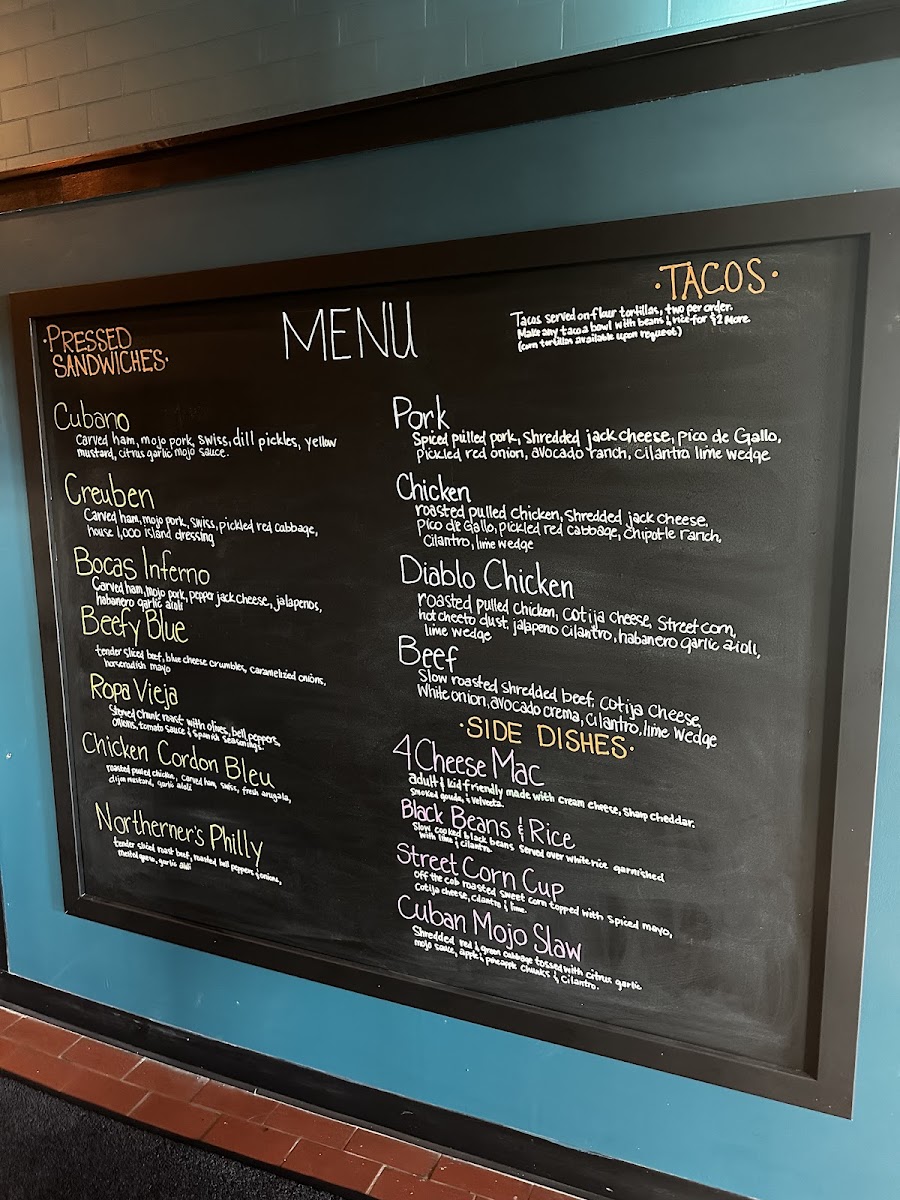 MENU
·PRESSED
SANDWICHES·
Cubano
Carved ham, mojo pork, swiss, dill pickles, yellow
mustard, citrus garlic mojo sauce.
Creuben
Carved ham, mojo pork, swiss, pickled red cabbage,
house 1,000 island dressing
Bocas Inferno
Carved ham, mojo pork, pepper jack cheese, jalapenos,
habanero garlic aioli
Beefy Blue
tender sliced beef, blue cheese crumbles, caramelized onions,
horseradish mayo
Ropa Vieja
Stewed chunk roast with olives, bell peppers,
onions, tomato sauce & Spanish seasonings.
Chicken Cordon Bleu
roasted pulled chicken, carved ham, swiss, fresh arugala,
dijon mustard, garlic aioli
Northerner's Philly
tender sliced roast beef, roasted bell peppers & onions,
garlic aioli
·TACOS·
Tacos served on flour tortillas, two per order.
Make any taco a bowl with beans & rice for $2 more.
(corn tortillas available upon request)
Pork
Spiced pulled pork, shredded jack cheese, pico de Gallo,
pickled red onion, avocado ranch, cilantro lime wedge
Chicken
roasted pulled chicken, shredded jack cheese,
pico de Gallo, pickled red cabbage, chipotle ranch,
Cilantro, lime wedge
Diablo Chicken
roasted pulled chicken, cotija cheese, street corn,
hot cheeto dust, jalapeno cilantro, habanero garlic aioli,
lime wedge
Beef
Slow roasted shredded beef, cotija cheese,
white onion, avocado crema, cilantro, lime wedge
·SIDE DISHES·
4 Cheese Mac
adult & kid friendly made with cream cheese, sharp cheddar,
smoked gouda, & velveeta.
Black Beans & Rice
Slow cooked black beans served over white rice garnished
with lime & cilantro
Street Corn Cup
off the cob roasted sweet corn topped with spiced mayo,
cotija cheese, cilantro & lime.
Cuban Mojo Slaw
Shredded red & green cabbage tossed with citrus garlic
mojo sauce, apple & pineapple chunks & cilantro.